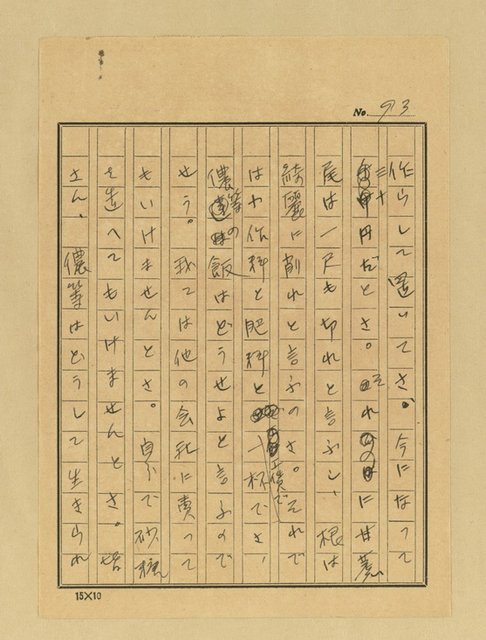 No. 93
作らして置いてさ。今になって
三十円だとさ。それに甘蔗
尾は一尺も切れと言ふし、根は
綺麗に削れと言ふのさ。それで
はや作料と肥料と工價で一杯でさ、
儂等の飯はどうせよと言ふので
せう。我では他の会社に売って
もいけませんとさ。自分で砂糖
を造へてもいけませんとさ。
さん。儂等はどうして生きられ
15×10